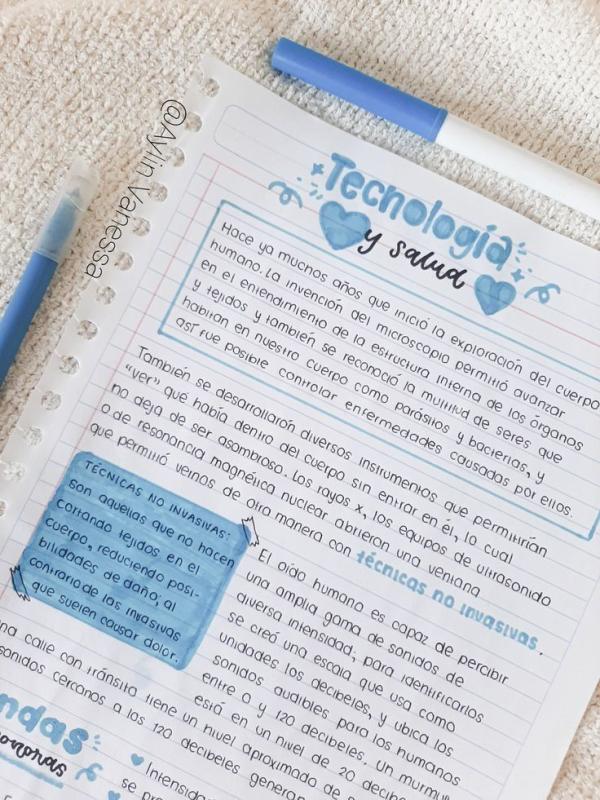 @Aylin Vanessa
Tecnología
y salud
Hace ya muchos años que inició la exploración del cuerpo
humano. La invención del microscopio permitió avanzar
en el entendimiento de la estructura interna de los órganos
y tejidos y también se reconoció la multitud de seres que
habitan en nuestro cuerpo como parásitos y bacterias, y
así fue posible controlar enfermedades causadas por ellos.
También se desarrollaron diversos instrumentos que permitirían
"ver" qué había dentro del cuerpo sin entrar en él, lo cual
no deja de ser asombroso. Los rayos x, los equipos de ultrasonido
o de resonancia magnética nuclear abrieron una ventana
que permitió vernos de otra manera con técnicas no invasivas.
TÉCNICAS NO INVASIVAS:
Son aquellas que no hacen
cortando tejidos en el
cuerpo, reduciendo posi-
bilidades de daño; al
contrario de las invasivas
que suelen causar dolor.
El oído humano es capaz de percibir
una amplia gama de sonidos de
diversa intensidad; para identificarlos
se creó una escala que usa como
unidades los decibeles, y ubica los
sonidos audibles para los humanos
entre 0 y 120 decibeles. Un murmu
está en un nivel de 20 decibe
na calle con tránsito tiene un nivel aproximado de
sonidos cercanos a los 120 decibeles generan
ndas
sonoras
Intensidad
se pr